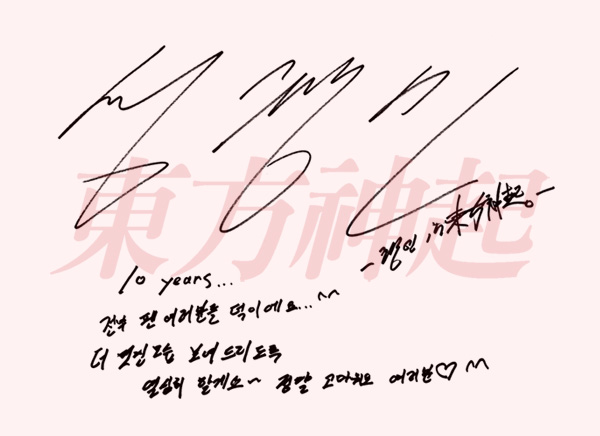 심창민
東方神起
-창민 in 東方神起-
10 years...
전부 팬 여러분들 덕이에요...^^
더 멋진 모습 보여 드리도록
열심히 할게요~ 정말 고마워요 여러분♡ ^^